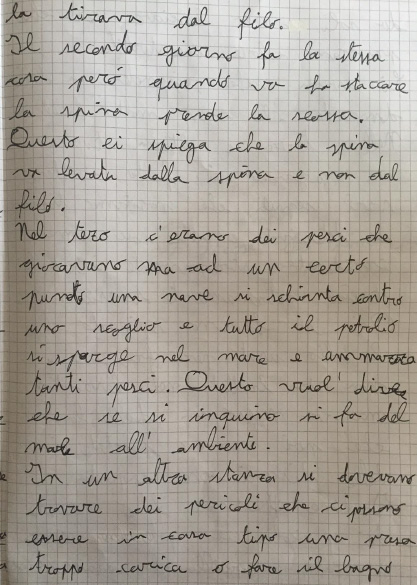 la tirava dal filo.
Il secondo giorno fa la stessa
cosa però quando va ha staccare
la spina prende la scossa.
Questo ci spiega che la spina
va levata dalla spina e non dal
filo.
Nel tezo c'erano dei pesci che
giocavano ma ad un certo
punto una nave si schianta contro
uno scoglio e tutto il petrolio
si sparge nel mare e ammazza
tanti pesci. Questo vuol' dire
che se si inquina si fa del
male all' ambiente.
In un altra stanza si dovevano
trovare dei pericoli che ci possono
essere in casa tipo una presa
troppo carica o fare il bagno